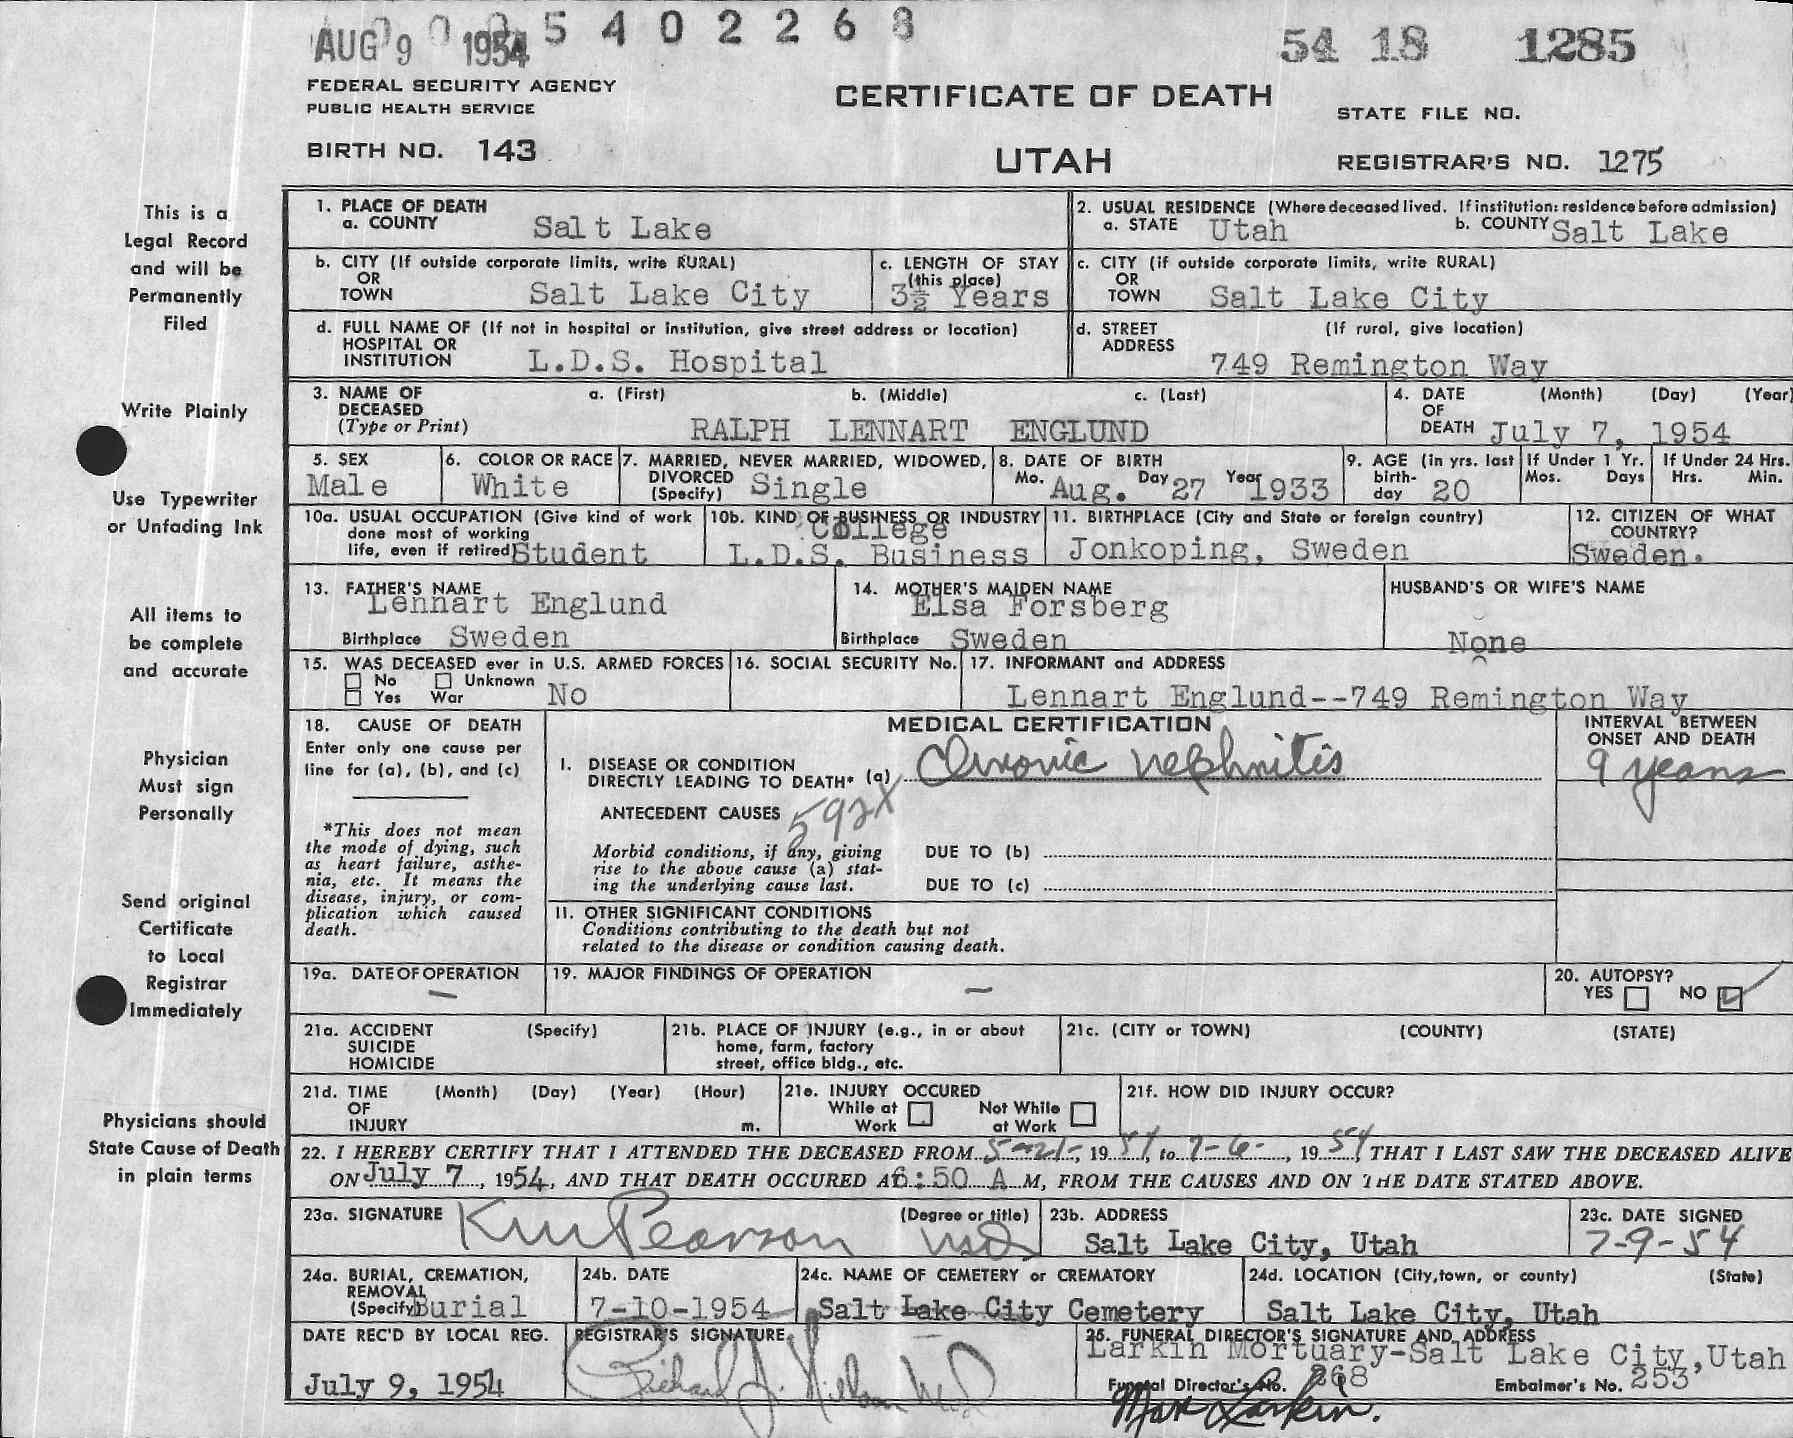 AUG 9 1954 5 4 0 2 2 6 8
54 18 1285
FEDERAL SECURITY AGENCY
PUBLIC HEALTH SERVICE
CERTIFICATE OF DEATH
STATE FILE NO.
BIRTH NO. 143
UTAH
REGISTRAR'S NO. 1275
This is a
Legal Record
and will be
Permanently
Filed
Write Plainly
Use Typewriter
or Unfading Ink
All items to
be complete
and accurate
Physician
Must sign
Personally
Send original
Certificate
to Local
Registrar
Immediately
Physicians should
State Cause of Death
in plain terms
1. PLACE OF DEATH
a. COUNTY Salt Lake
2. USUAL RESIDENCE (Where deceased lived. If institution: residence before admission)
a. STATE Utah b. COUNTY Salt Lake
b. CITY (If outside corporate limits, write RURAL)
OR
TOWN Salt Lake City
c. LENGTH OF STAY
(this place)
3½ Years
c. CITY (if outside corporate limits, write RURAL)
OR
TOWN Salt Lake City
d. FULL NAME OF (If not in hospital or institution, give street address or location)
HOSPITAL OR
INSTITUTION L.D.S. Hospital
d. STREET (If rural, give location)
ADDRESS
749 Remington Way
3. NAME OF a. (First) b. (Middle) c. (Last)
DECEASED
(Type or Print) RALPH LENNART ENGLUND
4. DATE (Month) (Day) (Year)
OF
DEATH July 7, 1954
5. SEX
Male
6. COLOR OR RACE
White
7. MARRIED, NEVER MARRIED, WIDOWED,
DIVORCED
(Specify) Single
8. DATE OF BIRTH
Mo. Aug. Day 27 Year 1933
9. AGE (in yrs. last
birth-
day 20
If Under 1 Yr.
Mos. Days
If Under 24 Hrs.
Hrs. Min.
10a. USUAL OCCUPATION (Give kind of work
done most of working
life, even if retired) Student
10b. KIND OF BUSINESS OR INDUSTRY
College
L.D.S. Business
11. BIRTHPLACE (City and State or foreign country)
Jonkoping, Sweden
12. CITIZEN OF WHAT
COUNTRY?
Sweden.
13. FATHER'S NAME
Lennart Englund
Birthplace Sweden
14. MOTHER'S MAIDEN NAME
Elsa Forsberg
Birthplace Sweden
HUSBAND'S OR WIFE'S NAME
None
15. WAS DECEASED ever in U.S. ARMED FORCES
No Unknown
Yes War No
16. SOCIAL SECURITY No.
17. INFORMANT and ADDRESS
Lennart Englund--749 Remington Way
18. CAUSE OF DEATH
Enter only one cause per
line for (a), (b), and (c)
*This does not mean
the mode of dying, such
as heart failure, asthe-
nia, etc. It means the
disease, injury, or com-
plication which caused
death.
MEDICAL CERTIFICATION
I. DISEASE OR CONDITION
DIRECTLY LEADING TO DEATH* (a) Chronic nephritis
ANTECEDENT CAUSES 592X
Morbid conditions, if any, giving
rise to the above cause (a) stat-
ing the underlying cause last.
DUE TO (b)
DUE TO (c)
II. OTHER SIGNIFICANT CONDITIONS
Conditions contributing to the death but not
related to the disease or condition causing death.
INTERVAL BETWEEN
ONSET AND DEATH
9 years
19a. DATE OF OPERATION
—
19. MAJOR FINDINGS OF OPERATION
—
20. AUTOPSY?
YES NO ✓
21a. ACCIDENT (Specify)
SUICIDE
HOMICIDE
21b. PLACE OF INJURY (e.g., in or about
home, farm, factory
street, office bldg., etc.
21c. (CITY or TOWN) (COUNTY) (STATE)
21d. TIME (Month) (Day) (Year) (Hour)
OF
INJURY m.
21e. INJURY OCCURED
While at Not While
Work at Work
21f. HOW DID INJURY OCCUR?
22. I HEREBY CERTIFY THAT I ATTENDED THE DECEASED FROM 5-21-, 1954, to 7-6-, 1954, THAT I LAST SAW THE DECEASED ALIVE
ON July 7, 1954, AND THAT DEATH OCCURED AT 6:50 A M, FROM THE CAUSES AND ON THE DATE STATED ABOVE.
23a. SIGNATURE (Degree or title)
Pearson MD
23b. ADDRESS
Salt Lake City, Utah
23c. DATE SIGNED
7-9-54
24a. BURIAL, CREMATION,
REMOVAL
(Specify) Burial
24b. DATE
7-10-1954
24c. NAME OF CEMETERY or CREMATORY
Salt Lake City Cemetery
24d. LOCATION (City, town, or county) (State)
Salt Lake City, Utah
DATE REC'D BY LOCAL REG.
July 9, 1954
REGISTRAR'S SIGNATURE
Richard J.
25. FUNERAL DIRECTOR'S SIGNATURE AND ADDRESS
Larkin Mortuary-Salt Lake City, Utah
Funeral Director's No. 268 Embalmer's No. 253
Max Larkin.